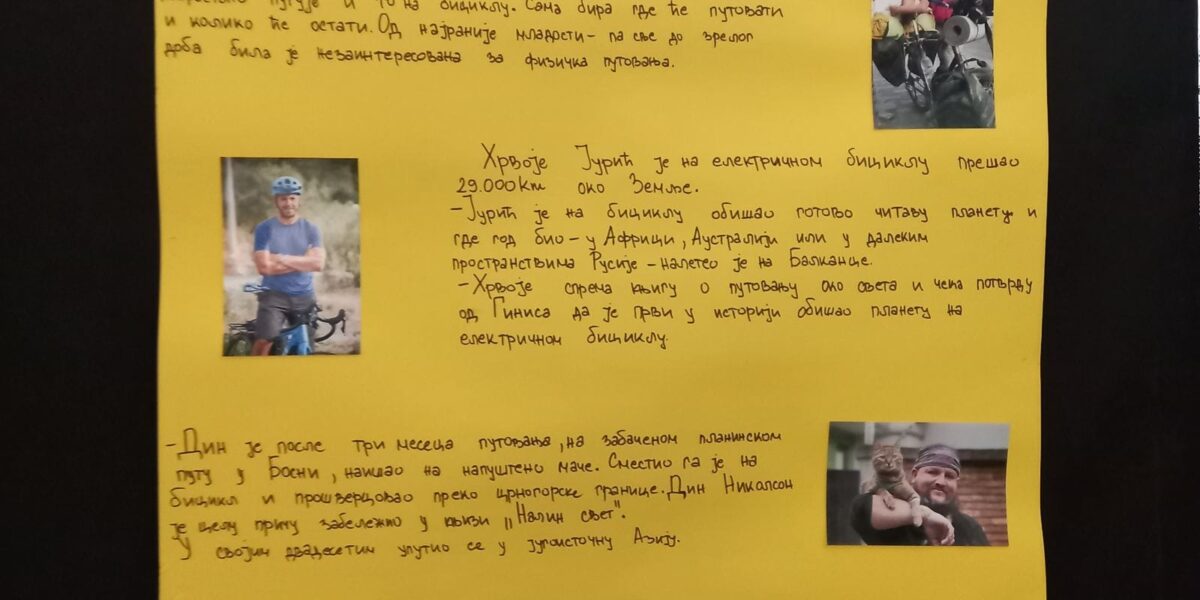 путује и то на бициклу. Сама бира где ће путовати
и колико ће остати. Од најраније младости - па све до зрелог
доба била је незаинтересована за физичка путовања.
Хрвоје Јурић је на електричном бициклу прешао
29.000km око Земље.
-Јурић је на бициклу обишао готово читаву планету и
где год био - у Африци, Аустралији или у далеким
пространствима Русије - налетео је на Балканце.
-Хрвоје спрема књигу о путовању око света и чека потврду
од Гиниса да је први у историји обишао планету на
електричном бициклу.
-Дин је после три месеца путовања, на забаченом планинском
путу у Босни, наишао на напуштено маче. Сместио га је на
бицикл и прошверцовао преко црногорске границе. Дин Николсон
је целу причу забележио у књизи „Налин свет".
У својим двадесетим упутио се у југоисточну Азију.